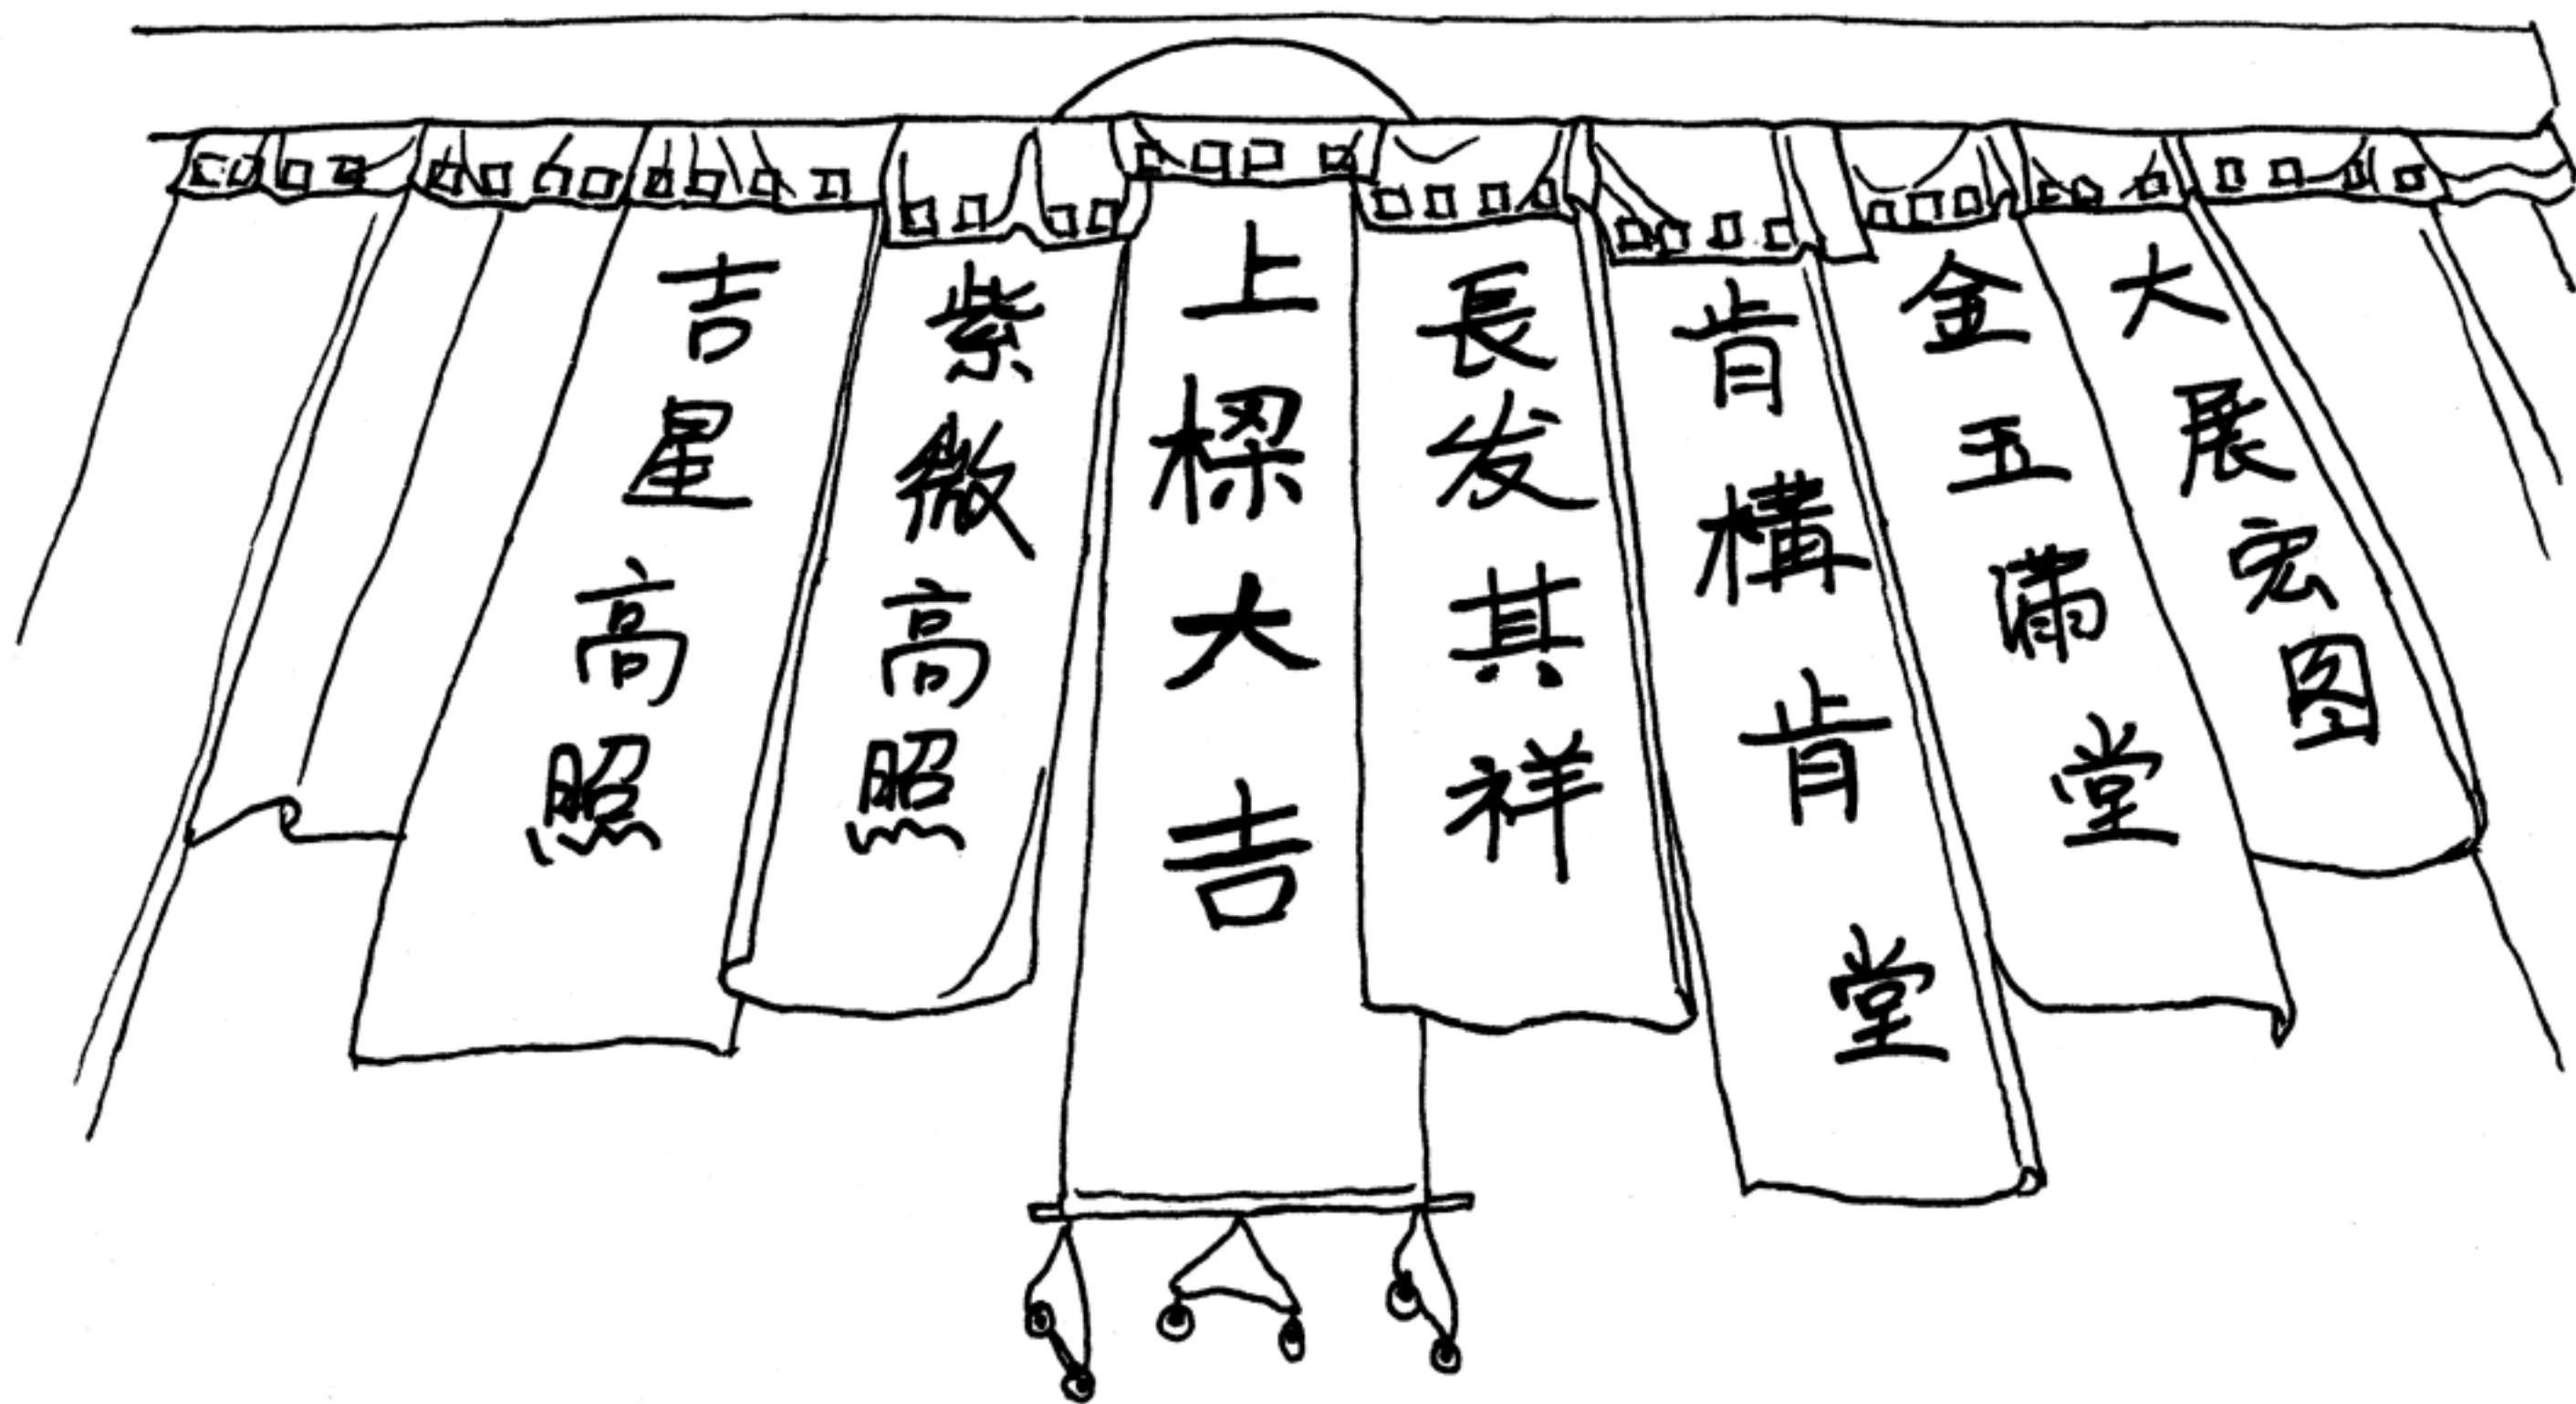 吉星高照
紫微高照
上樑大吉
長发其祥
肯構肯堂
金玉滿堂
大展宏图